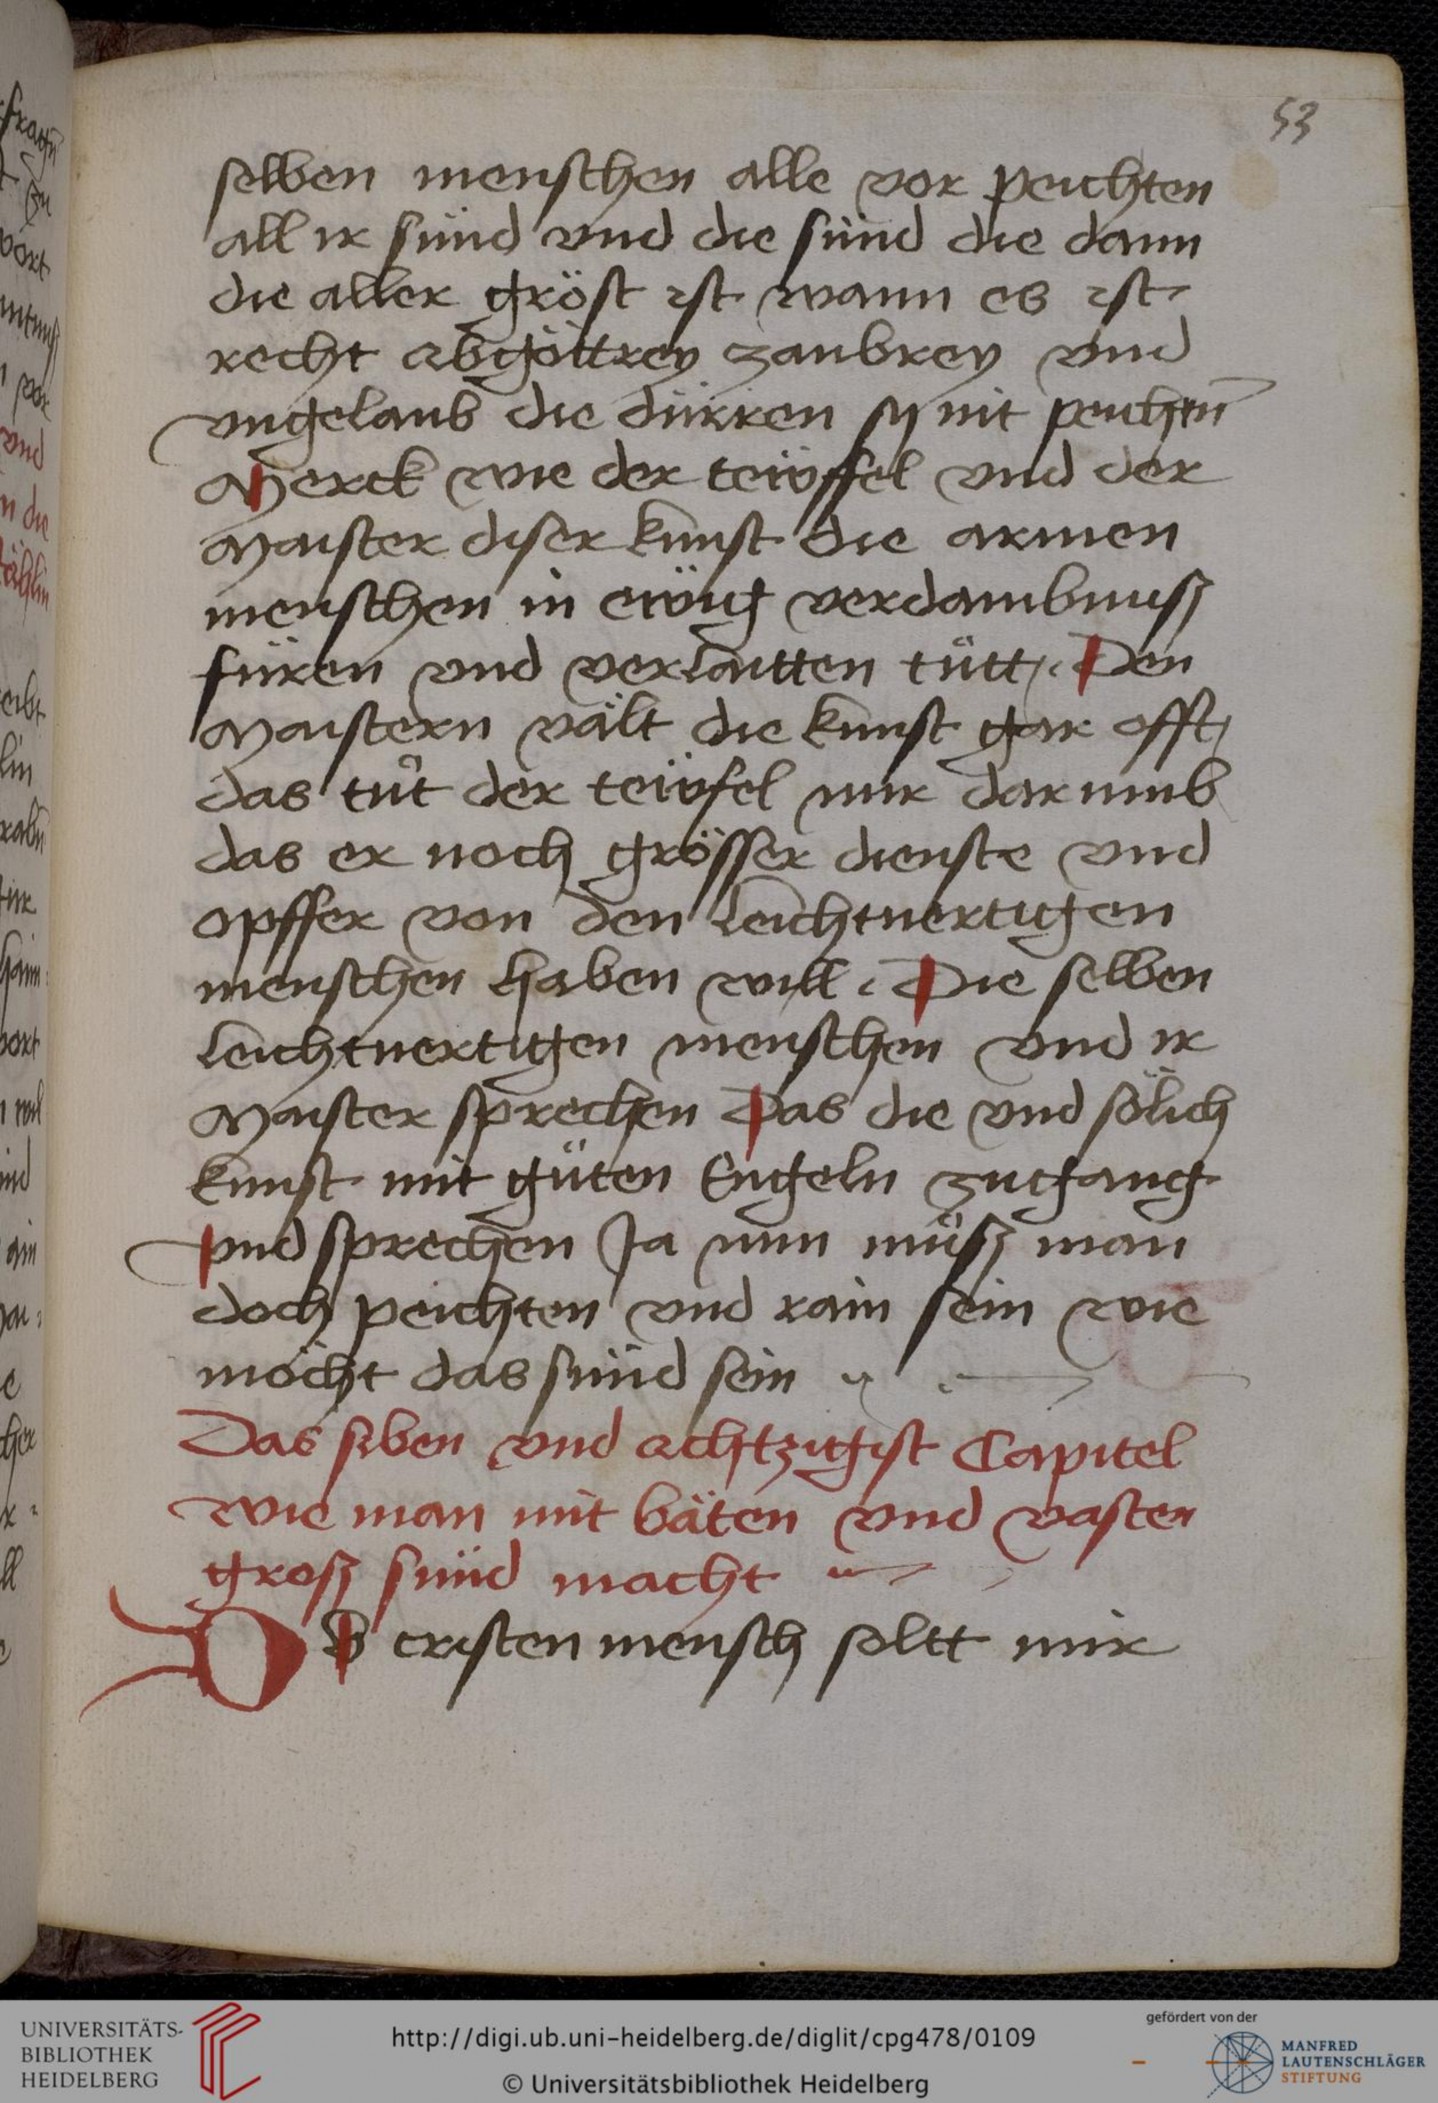 53
selben menschen alle vor peichten
all ir sünd vnd die sünd die dann
die aller gröst ist wann es ist
recht abgöttrey zaubrey vnd
vngelaub die dürren sy nit peichtn̄
Merck wie der teẅffel vnd der
Maister diser kunst die armen
menschen in eẅig verdambnuß
füren vnd verlaitten tütt / Den
Maistern vält die kunst gar offt /
das tůt der teẅfel nur darumb
das er noch grösser dienste vnd
opffer von den leichtuertigen
menschen haben will . Die selben
leichtuertigen menschen vnd ir
Maister sprechen Das die vnd sölich
kunst mit gůten Engeln zugang
vnd sprechen Ja nun můß man
doch peichten vnd rain sein wie
möcht das sünd sein
Das siben vnd achtzigist Capitel
wie man mit bäten vnd vasten
groß sünd macht
OB cristen mensch soltt mir
UNIVERSITÄTS-
BIBLIOTHEK
HEIDELBERG
http://digi.ub.uni-heidelberg.de/diglit/cpg478/0109
© Universitätsbibliothek Heidelberg
gefördert von der
MANFRED
LAUTENSCHLÄGER
STIFTUNG